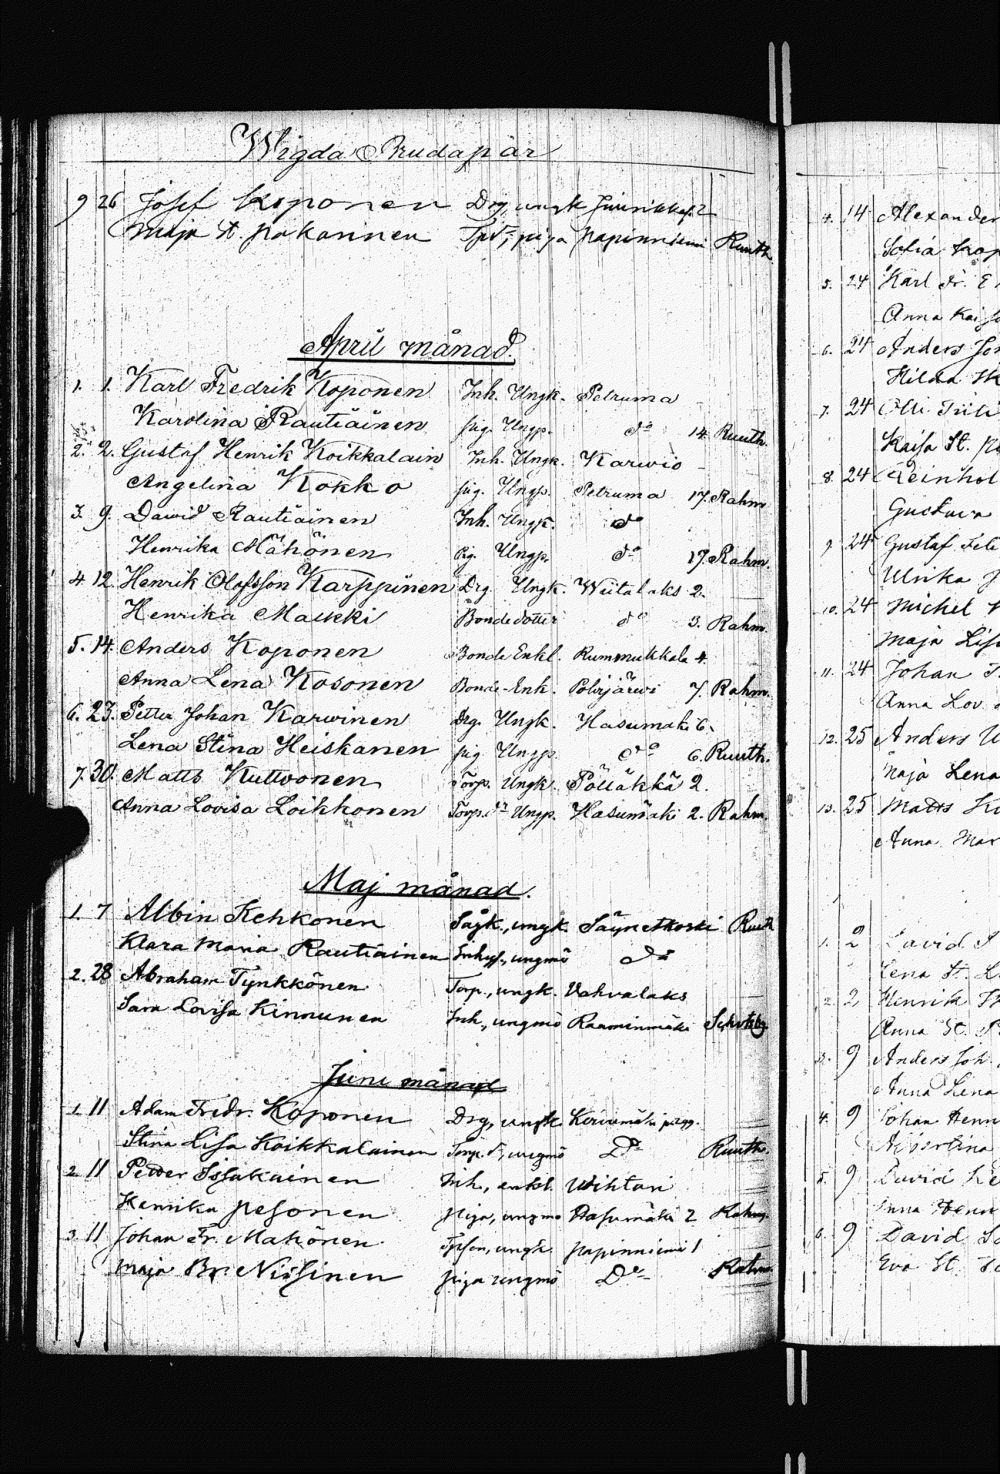 Wigda Brudapar
9 26 Josef Koponen Drg, ungk Juurikka 2
Maja St. Pakarinen Tpd:r, piga Papinniemi Ruuth.
April månad.
1. 1. Karl Fredrik Koponen Inh. Ungk. Petruma
Karolina Rautiäinen pig. Ungp. do 14. Ruuth.
2. 2. Gustaf Henrik Koikkalain Inh. Ungk. Karwio
Angelina Kokko pig. Ungp. Petruma 17. Rahm.
3. 9. Dawid Rautiäinen Inh. Ungk. do
Henrika Mähönen Pig. Ungp. do 17. Rahm.
4. 12. Henrik Olofsson Karppinen Drg. Ungk. Wiitalaks 2.
Henrika Maukki Bondedotter do 3. Rahm.
5. 14. Anders Koponen Bonde Enkl. Rummukkala 4.
Anna Lena Kosonen Bonde-Enk. Polvijärwi 7. Rahm.
6. 23. Petter Johan Karwinen Drg. Ungk. Hasumäki 6.
Lena Stina Heiskanen pig Ungp. do 6. Ruuth.
7. 30. Matts Kuttvonen Torp. Ungk. Pölläkkä 2.
Anna Lovisa Loikkonen Torp. dr Ungp. Hasumäki 2. Rahm.
Maj månad.
1. 7 Albin Kehkonen Sågk., ungk. Säynetkoski Ruuth
Klara Maria Rautiainen Inhys., ungmö do
2. 28 Abraham Tynkkönen Torp., ungk. Vahvalaks
Sara Lovisa Kinnunen Inh., ungmö Raaminmäki
Juni månad
1. 11 Adam Fredr. Koponen Drg, ungk Kerimäki
Stina Lisa Koikkalainen Torp. dr, ungmö Do Ruuth.
2. 11 Petter Issakainen Inh., enkl. Wihtari
Henrika Pesonen piga, ungmö Hasumäki 2 Rahm.
3. 11 Johan Fr. Mähönen Tpson, ungk. Papinniemi 1
Maja Br. Nissinen piga ungmö Do Rahm.
4. 14 Alexander
Sofia
5. 24 Karl Fr.
Anna Kaisa
6. 24 Anders Joh
Hilda
7. 24 Olli
Kaisa St.
8. 24 Reinhol
Gustava
9. 24 Gustaf
Ulrika
10. 24 Michel
Maja Lisa
11. 24 Johan
Anna Lov.
12. 25 Anders
Maja Lena
13. 25 Matts
Anna Mar
1. 2 David
Lena St.
2. 2 Henrik
Anna St.
3. 9 Anders Joh.
Anna Lena
4. 9 Johan Henn
Albertina
5. 9 David
Anna Henr
6. 9 David
Eva St.